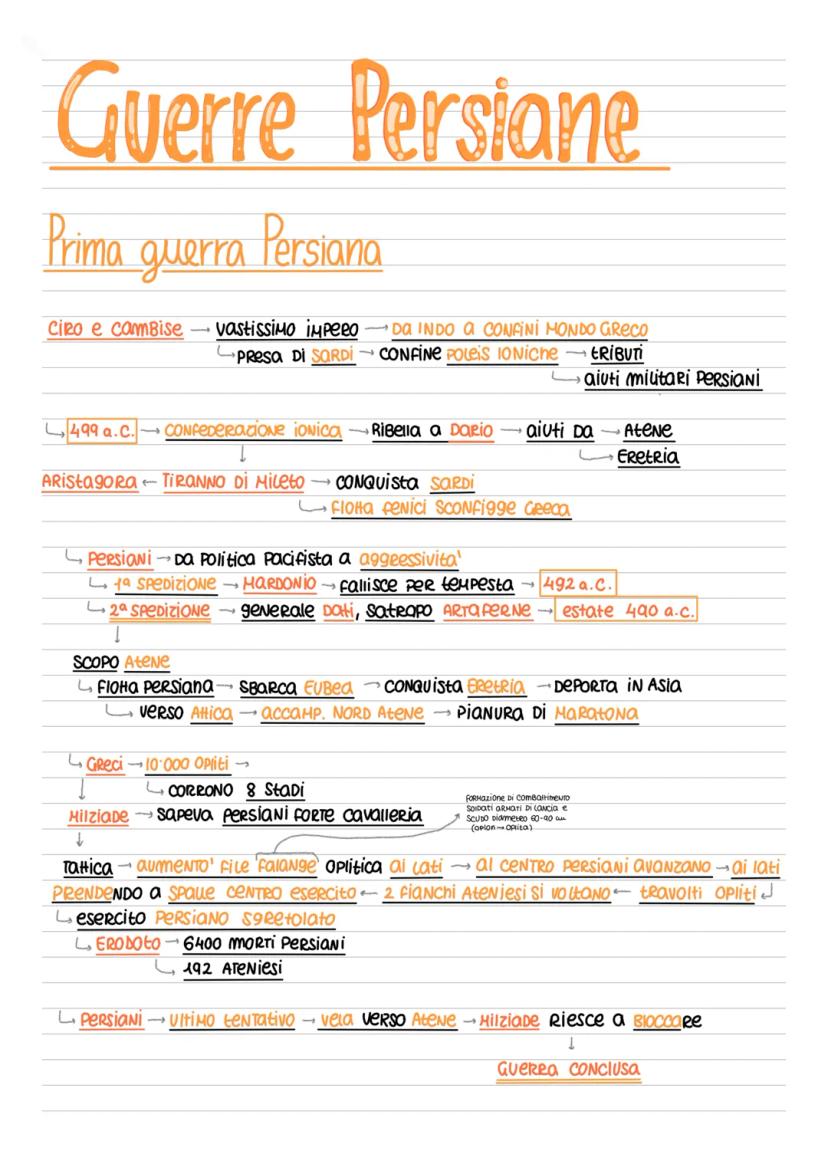 Guerre Persiane
Prima guerra Persiana
Ciro e Cambise → vastissimo impero → da Indo a confini mondo greco
↳ presa di Sardi → confine poleis ioniche → tributi
↳ aiuti militari persiani
↳ 499 a.C. → confederazione ionica → Ribella a Dario → aiuti da → Atene
↳ Eretria
↓
Aristagora ← Tiranno di Mileto → conquista Sardi
↳ flotta fenici sconfigge greca
↳ Persiani → da politica pacifista a aggressivita'
↳ 1ª spedizione → Mardonio → fallisce per tempesta → 492 a.C.
↳ 2ª spedizione → generale Dati, satrapo Artaferne → estate 490 a.C.
↓
scopo Atene
↳ flotta persiana → sbarca Eubea → conquista Eretria → deporta in Asia
↳ verso Attica → accamp. nord Atene → pianura di Maratona
↳ Greci → 10'000 opliti →
↳ corrono 8 stadi
↓
Milziade → sapeva persiani forte cavalleria
formazione di combattimento
soldati armati di lancia e
scudo diametro 80-90 cm
(oplon → oplita)
↓
Tattica → aumento' file falange oplitica ai lati → al centro persiani avanzano → ai lati
prendendo a spalle centro esercito ← 2 fianchi Ateniesi si voltano ← travolti opliti ↲
↳ esercito persiano sgretolato
↳ Erodoto → 6400 morti persiani
↳ 192 Ateniesi
↳ Persiani → ultimo tentativo → vela verso Atene → Milziade riesce a bloccare
↓
guerra conclusa